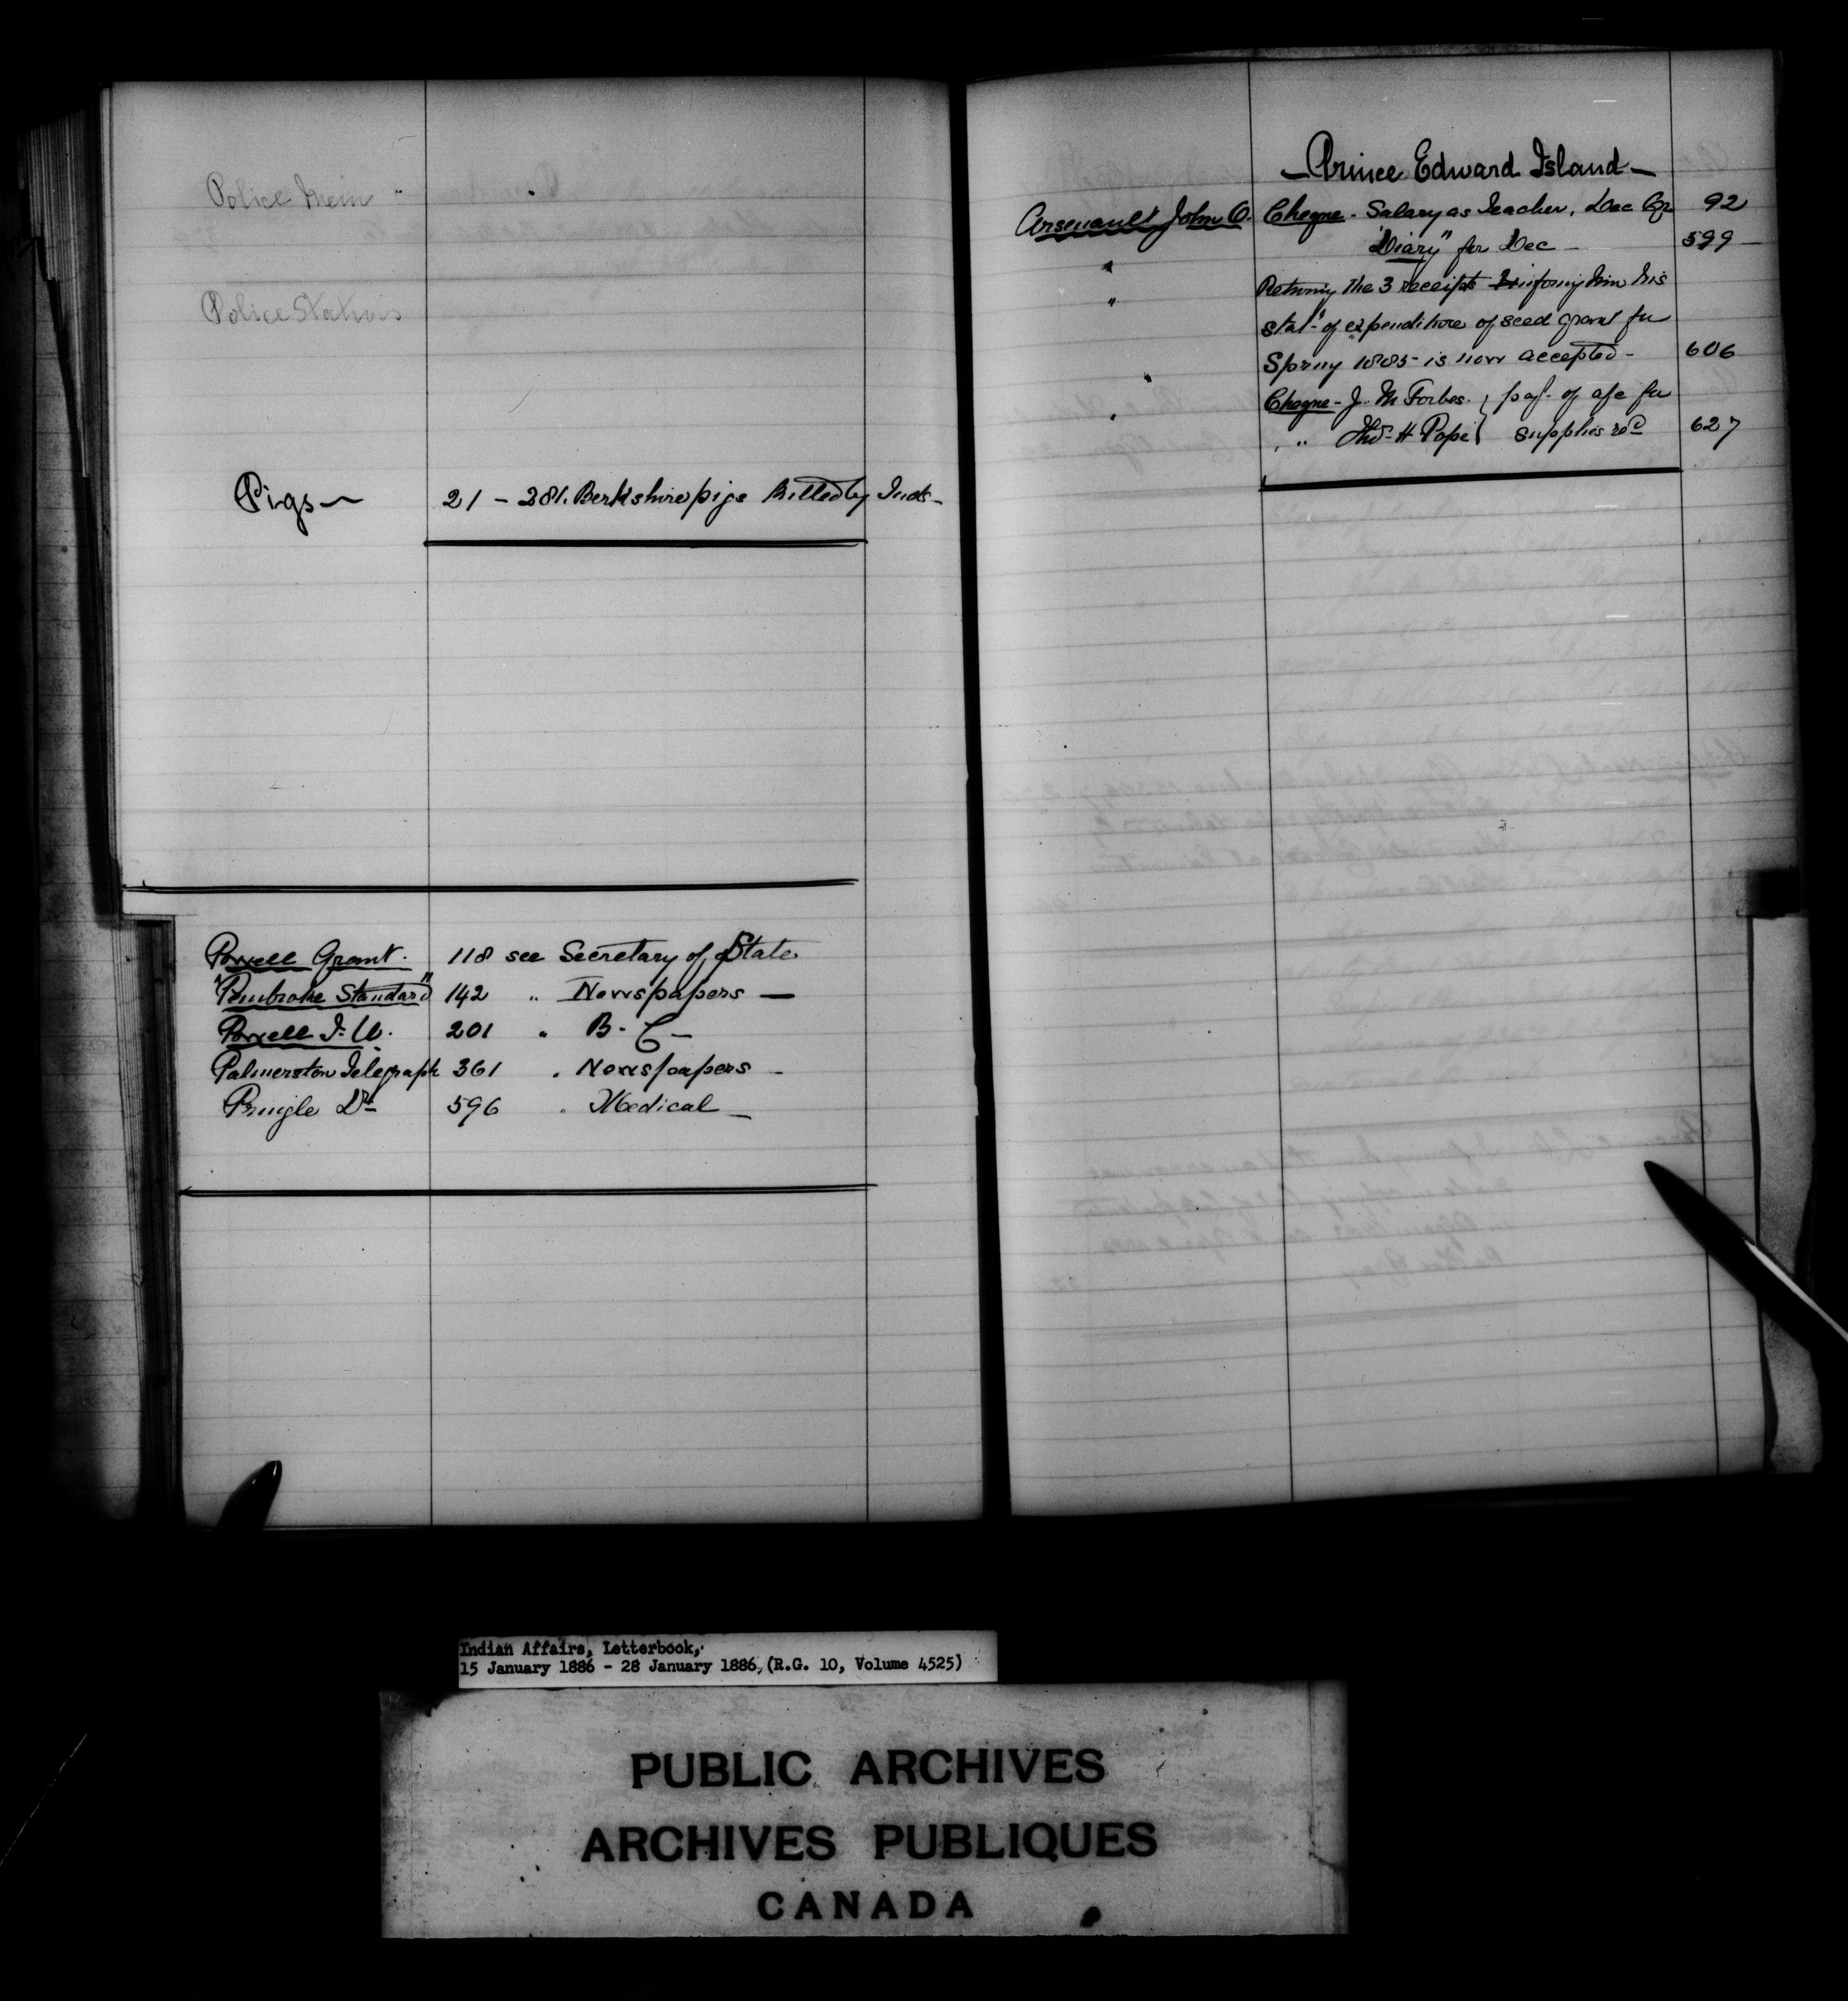 Police Men "
Police Stations
Pigs — 21 - 281. Berkshire pigs killed by Inds -
Powell Grant. 118 see Secretary of State
"Pembroke Standard" 142 " Newspapers —
Powell I. W. 201 " B. C —
Palmerston Telegraph 361 " Newspapers -
Pringle Dr 596 " Medical —
— Prince Edward Island —
Arsenault John O. Cheque - Salary as Teacher, Dec Qr 92
" "Diary" for Dec — 599 —
" Returning the 3 receipts informing him his
stat't of expenditure of seed grant for
Spring 1885 - is now accepted - 606
" Cheque - J. M Forbes. } pay't of a/c for
" " Thos. H Pope } supplies rec'd 627
Indian Affairs, Letterbook,
15 January 1886 - 28 January 1886, (R.G. 10, Volume 4525)
PUBLIC ARCHIVES
ARCHIVES PUBLIQUES
CANADA